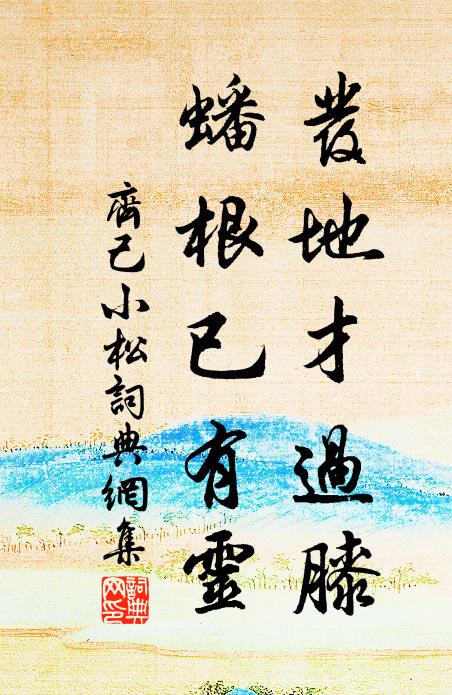 發地才過膝
蟠根已有靈
齊己小松詞典網集